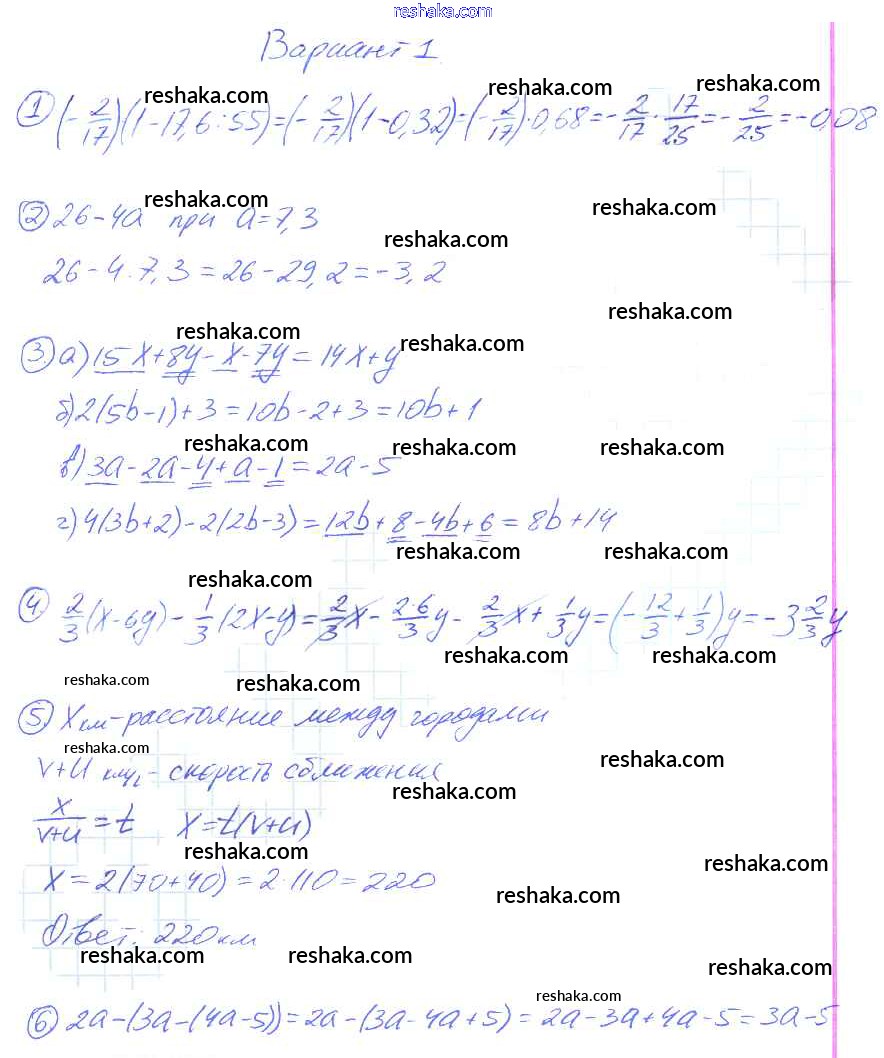 reshaka.com
Вариант 1
reshaka.com reshaka.com reshaka.com
① (-2/17)(1-17,6:55)=(-2/17)(1-0,32)=(-2/17)·0,68=-2/17·17/25=-2/25=-0,08
reshaka.com reshaka.com
② 26-4a при a=7,3
reshaka.com
26-4·7,3=26-29,2=-3,2
reshaka.com
reshaka.com reshaka.com
③ а) 15x+8y-x-7y=14x+y
б) 2(5b-1)+3=10b-2+3=10b+1
reshaka.com reshaka.com reshaka.com
в) 3a-2a-4+a-1=2a-5
г) 4(3b+2)-2(2b-3)=12b+8-4b+6=8b+14
reshaka.com reshaka.com
reshaka.com
④ 2/3(x-6y)-1/3(2x-y)=2/3x-2·6/3y-2/3x+1/3y=(-12/3+1/3)y=-3 2/3y
reshaka.com reshaka.com
reshaka.com reshaka.com
⑤ x км-расстояние между городами
reshaka.com reshaka.com
v+u км/ч - скорость сближения
reshaka.com
x/(v+u)=t x=t(v+u)
reshaka.com reshaka.com
x=2(70+40)=2·110=220
reshaka.com
Ответ: 220 км
reshaka.com reshaka.com reshaka.com
reshaka.com
⑥ 2a-(3a-(4a-5))=2a-(3a-4a+5)=2a-3a+4a-5=3a-5